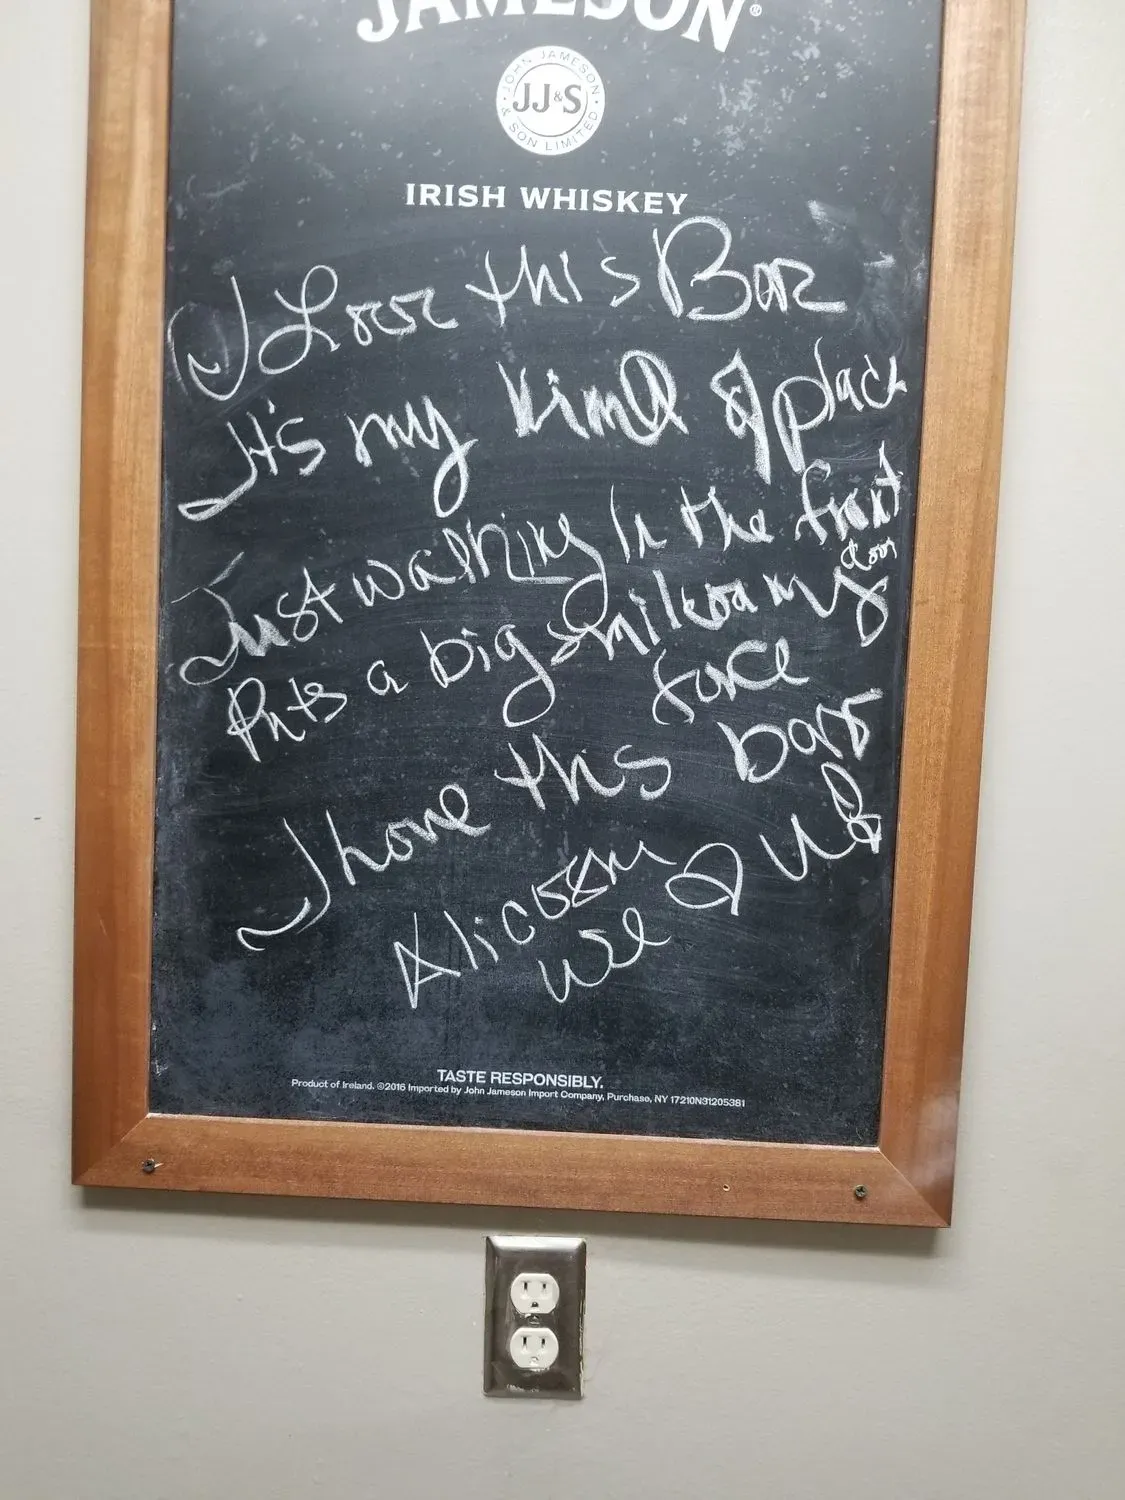 JAMESON®
JOHN JAMESON & SON LIMITED
JJ&S
IRISH WHISKEY
I Love this Bar
It's my kind of place
Just walking In the front
door
Puts a big smile on my
face
I love this bar
we
TASTE RESPONSIBLY.
Product of Ireland. ©2016 Imported by John Jameson Import Company, Purchase, NY 17210N31205381